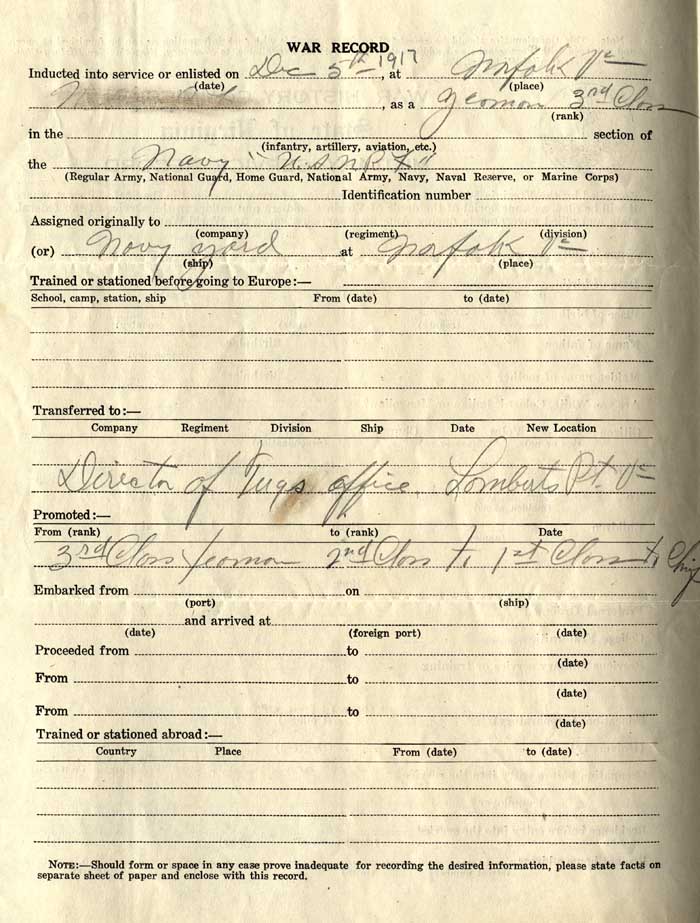 WAR RECORD
Inducted into service or enlisted on Dec 5th 1917, at Norfolk Va
(date) (place)
, as a Yeoman 3rd Class
(rank)
in the section of
(infantry, artillery, aviation, etc.)
the Navy "U.S.N.R.F."
(Regular Army, National Guard, Home Guard, National Army, Navy, Naval Reserve, or Marine Corps)
Identification number
Assigned originally to
(company) (regiment) (division)
(or) Navy yard at Norfolk Va
(ship) (place)
Trained or stationed before going to Europe:—
School, camp, station, ship From (date) to (date)
Transferred to:—
Company Regiment Division Ship Date New Location
Director of Tugs office. Lomberts Pt. Va
Promoted:—
From (rank) to (rank) Date
3rd Class Yeoman 2nd Class to 1st Class to Chief
Embarked from on
(port) (ship)
and arrived at
(date) (foreign port) (date)
Proceeded from to
(date)
From to
(date)
From to
(date)
Trained or stationed abroad:—
Country Place From (date) to (date)
NOTE:—Should form or space in any case prove inadequate for recording the desired information, please state facts on
separate sheet of paper and enclose with this record.